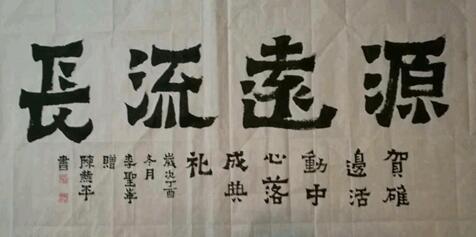 源遠流長
賀確
邊活
動中
心落
成典
礼
歲次丁酉
冬月
李聖
贈
陳燕平
書